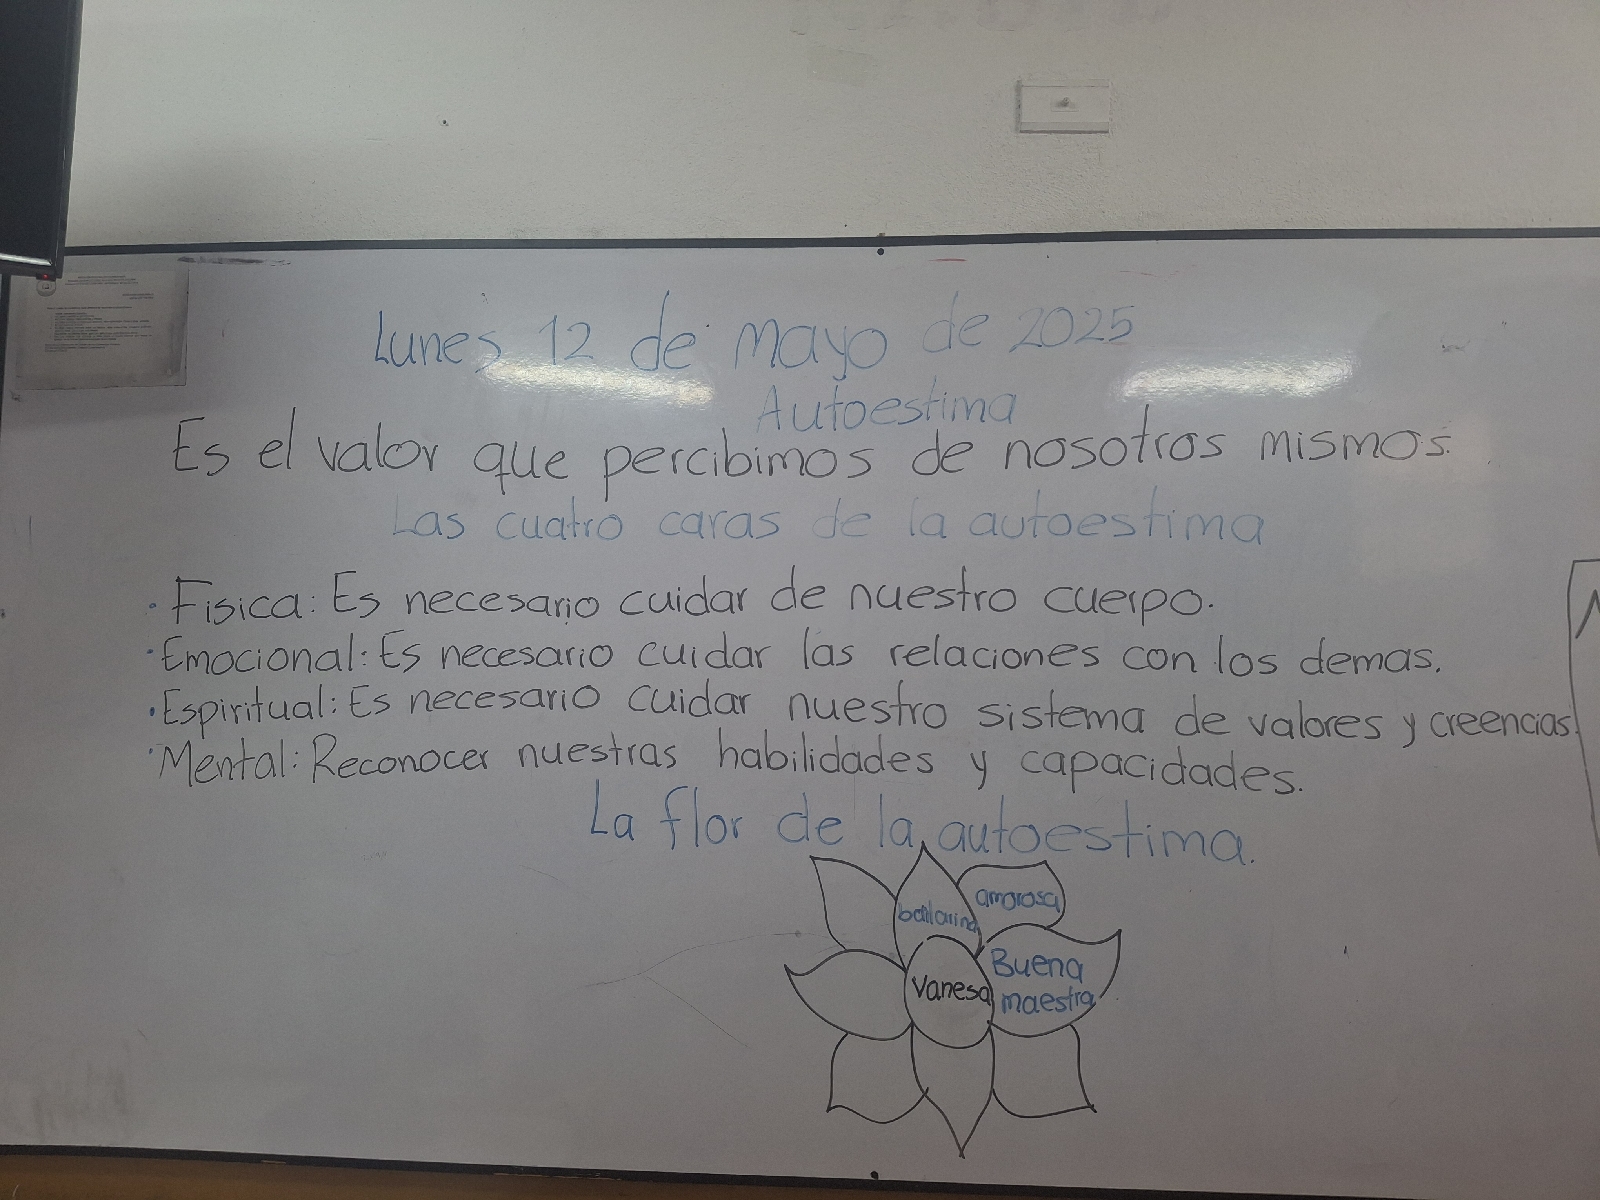 Lunes 12 de mayo de 2025
Autoestima
Es el valor que percibimos de nosotros mismos.
Las cuatro caras de la autoestima
· Fisica: Es necesario cuidar de nuestro cuerpo.
· Emocional: Es necesario cuidar las relaciones con los demas.
· Espiritual: Es necesario cuidar nuestro sistema de valores y creencias.
· Mental: Reconocer nuestras habilidades y capacidades.
La flor de la autoestima.
bailarina
amorosa
Vanesa
Buena
maestra